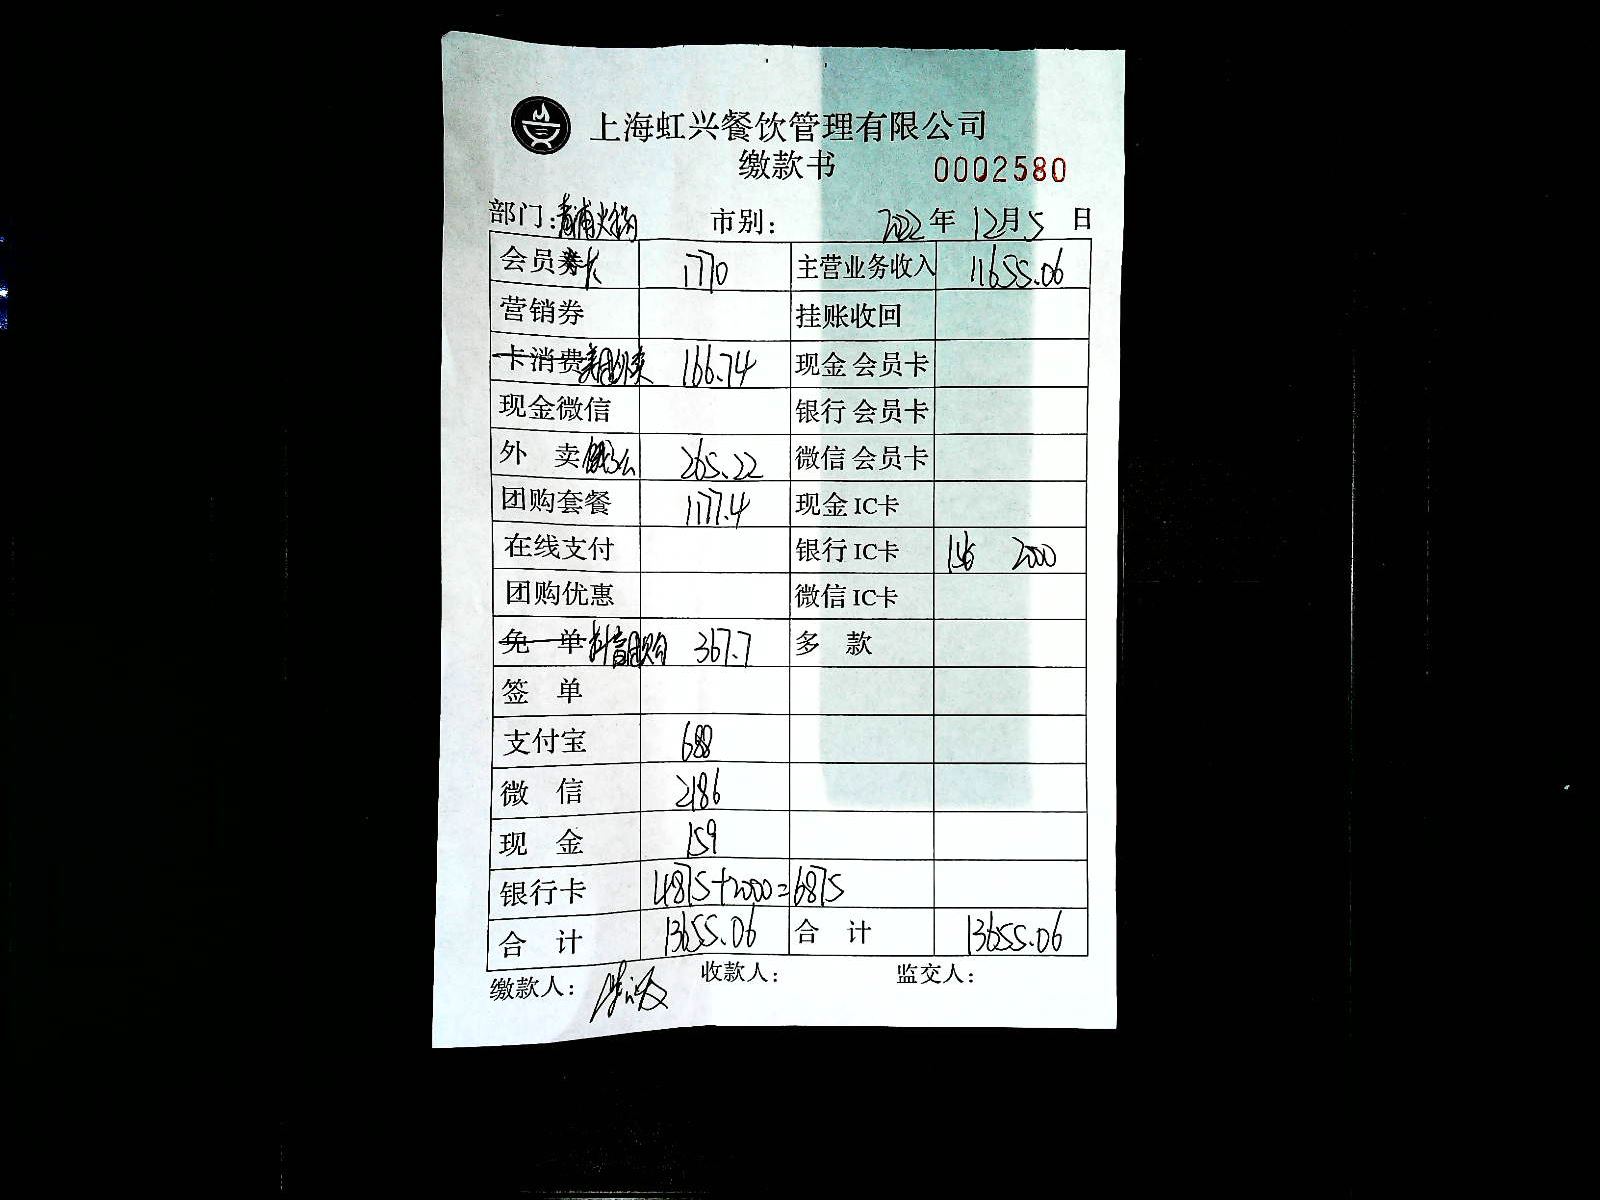 上海虹兴餐饮管理有限公司
缴款书 0002580
部门:青浦火锅 市别: 2022年 12月 5 日
会员券卡 1770 主营业务收入 11655.06
营销券 挂账收回
卡消费美团外卖 166.74 现金 会员卡
现金微信 银行 会员卡
外 卖饿了么 265.22 微信 会员卡
团购套餐 1177.4 现金 IC卡
在线支付 银行 IC卡 156 2000
团购优惠 微信 IC卡
免 单抖音团购 367.7 多 款
签 单
支付宝 688
微 信 2186
现 金 159
银行卡 4875+2000=6875
合 计 13655.06 合 计 13655.06
缴款人: 收款人: 监交人: